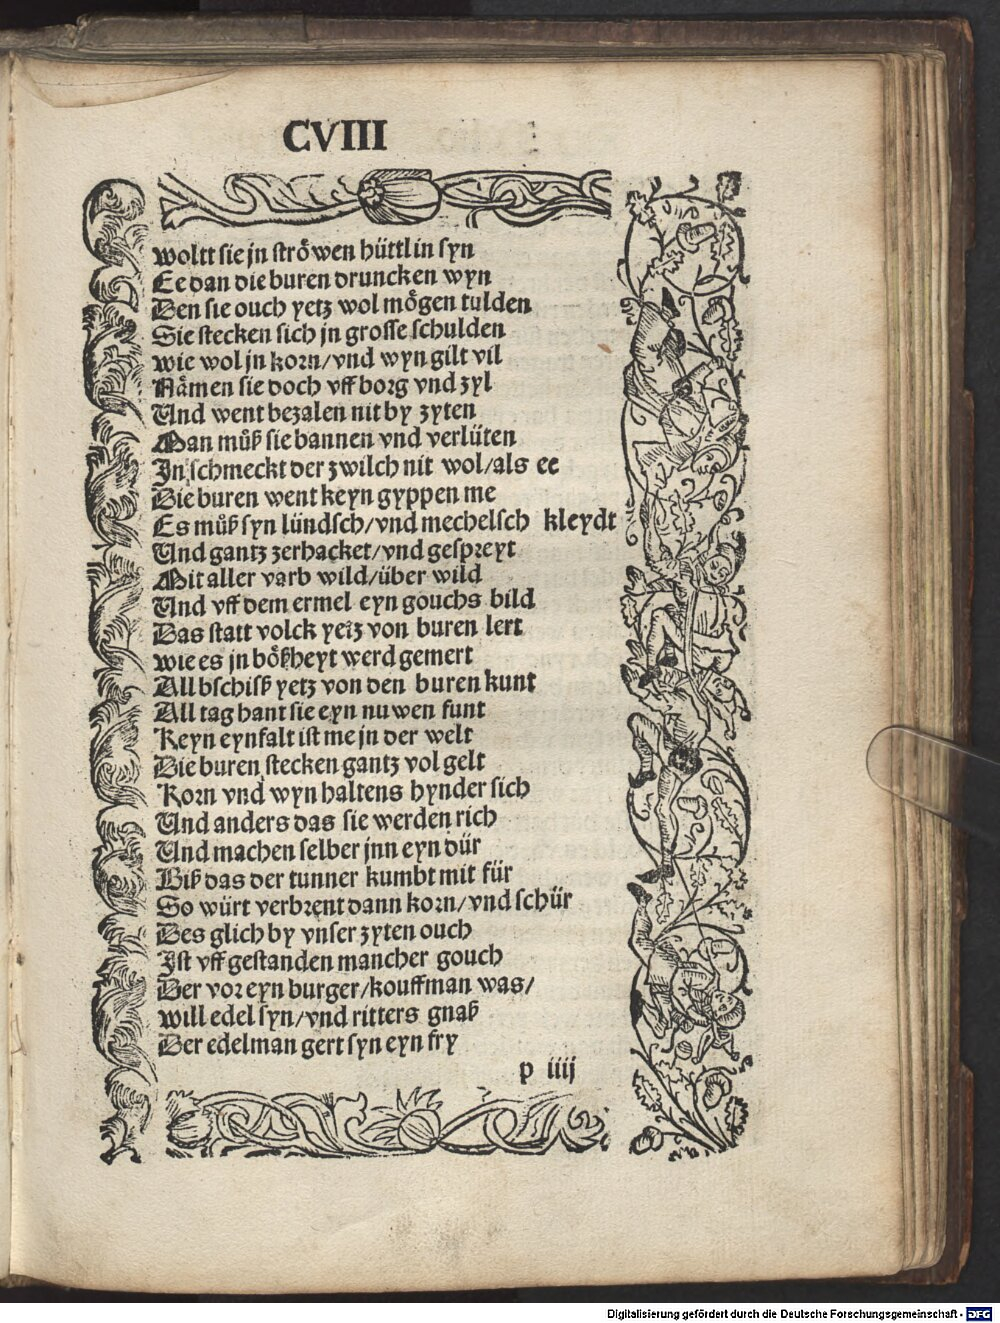 CVIII
woltt sie jn strőwen hüttlin syn
Ee dan die buren druncken wyn
Den sie ouch yetz wol mőgen tulden
Sie stecken sich jn grosse schulden
wie wol jn korn/vnd wyn gilt vil
Nämen sie doch vff borg vnd zyl
Und went bezalen nit by zyten
Man můß sie bannen vnd verlüten
In schmeckt der zwilch nit wol/als ee
Die buren went keyn gyppen me
Es můß syn lündsch/vnd mechelsch kleydt
Und gantz zerhacket/vnd gespreyt
Mit aller varb wild/über wild
Und vff dem ermel eyn gouchs bild
Das statt volck yetz von buren lert
wie es jn bőßheyt werd gemert
All bschisß yetz von den buren kunt
All tag hant sie eyn nuwen funt
Keyn eynfalt ist me jn der welt
Die buren stecken gantz vol gelt
Korn vnd wyn haltens hynder sich
Und anders das sie werden rich
Und machen selber jnn eyn dür
Biß das der tunner kumbt mit für
So würt verbrent dann korn/vnd schür
Des glich by vnser zyten ouch
Ist vff gestanden mancher gouch
Der vor eyn burger/kouffman was/
will edel syn/vnd ritters gnaß
Der edelman gert syn eyn fry
p iiij
Digitalisierung gefördert durch die Deutsche Forschungsgemeinschaft - DFG